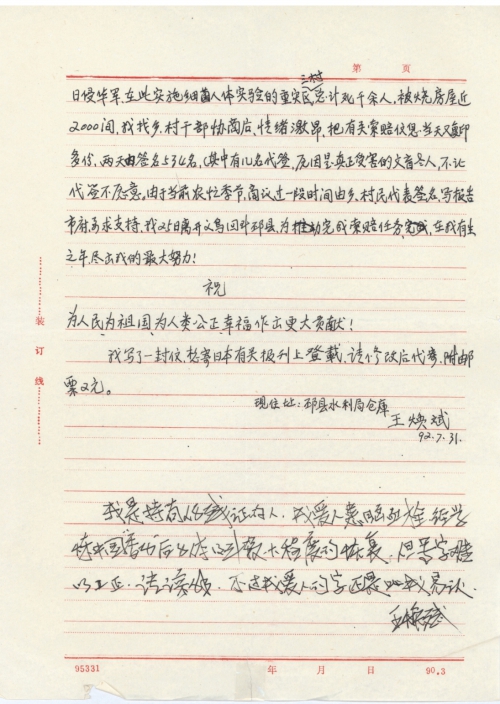 第 页
三村
日侵华军.在此实施细菌人体实验的重灾民,总计死千余人,被烧房屋近
2000间,我找乡.村干部协商后,情绪激昂,把有关索赔信息.当天复印
多份,两天由签名534名,(其中有几名代签,原因是真正受害的文盲老人,不让
代签不愿意,由于当前农忙季节,商议过一段时间由乡.村民代表签名,写报告
市府要求支持,我25日离开义乌回邳县.为推动完成索赔任务,在我有生
之年尽出我的最大努力!
祝
为人民为祖国为人类公正幸福作出更大贡献!
我写了一封信,想寄日本有关报刊上登载,请修改后代寄.附邮
票2元.
现住址:邳县水利局仓库
王焕斌
92.7.31.
我是持有残
我爱人
恢复,但写字难
以工正.请谅解,不过我爱人的字还是
易认.
王焕斌
装
订
线
95331 年 月 日 90.3